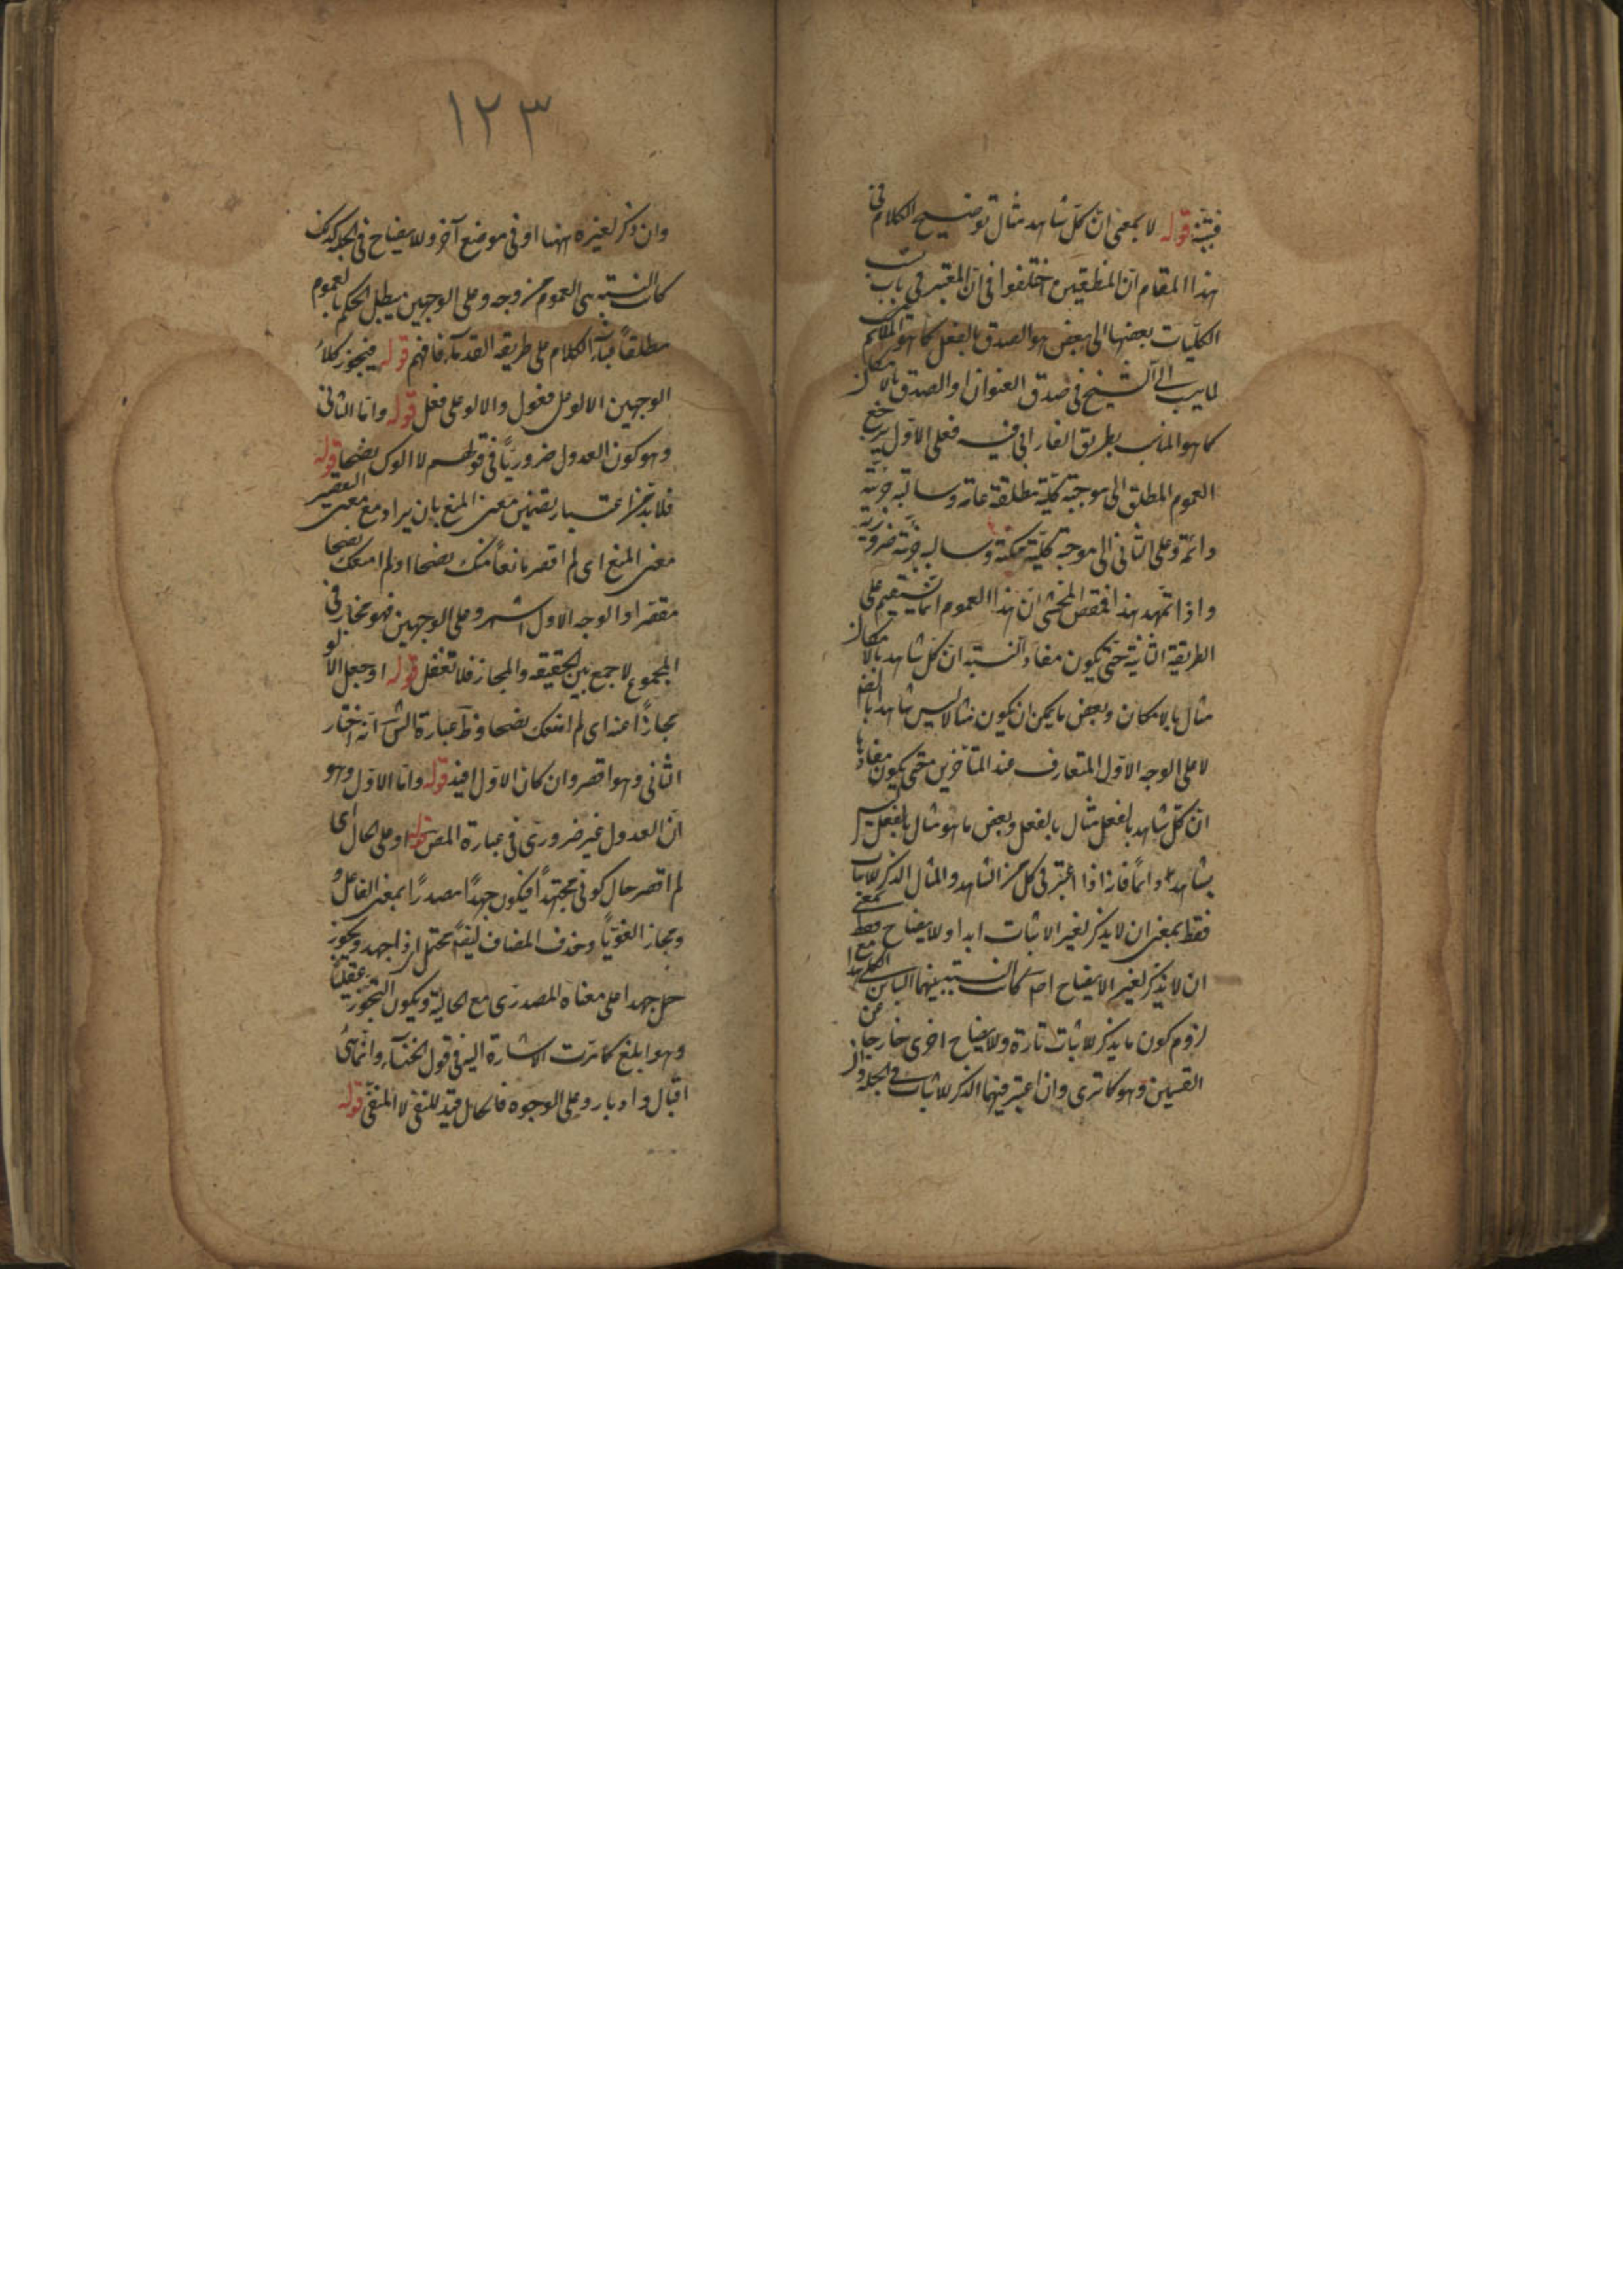 فتنبّه قوله لا بمعنى انّ كلّ شاهد مثال توضيح الكلام فى
هذا المقام انّ المنطقيين اختلفوا فى انّ المعتبر فى باب نسب
الكلّيات بعضها الى بعض هو الصدق بالفعل كما هو الملائم
الشيخ فى صدق العنوان او الصدق بالامكان
كما هو المناسب بطريق الفارابى فيه فعلى الاوّل يرجع
العموم المطلق الى موجبة كلّية مطلقة عامة وسالبة جزئية
دائمة وعلى الثانى الى موجبة كلّية ممكنة وسالبة جزئية ضرورية
واذا تمهّد هذا فمقصود المحشى انّ هذا العموم انّما يستقيم على
الطريقة الثانية حتى يكون مفاد النسبة ان كلّ شاهد بالامكان
مثال بالامكان وبعض ما يمكن ان يكون مثالا ليس شاهد بالضرورة
لا على الوجه الاوّل المتعارف عند المتأخرين حتى يكون مفادها
ان كلّ شاهد بالفعل مثال بالفعل وبعض ما هو مثال بالفعل ليس
بشاهد دائماً فانه اذا اعتبر فى كل من الشاهد والمثال الذكر للاثبات
فقط بمعنى ان لا يذكر لغير الاثبات ابدا وللايضاح فقط بمعنى
ان لا يذكر لغير الايضاح اصلا كانت النسبة بينهما التباين الكلى مع
لزوم كون ما يذكر للاثبات تارة وللايضاح اخرى خارجا عن
القسمين وهو كما ترى وان اعتبر فيهما الذكر للاثبات فى الجملة وان
١٢٣
وان ذكر لغيره ههنا او فى موضع آخر وللايضاح فى الجملة كذلك
كانت النسبة هى العموم من وجه وعلى الوجهين يبطل الحكم بالعموم
مطلقاً فبناء الكلام على طريقة القدماء فافهم قوله فيجوز كلا
الوجهين الالو على مفعول والالو على فعل قوله وامّا الثانى
وهو كون العدول ضروريّا فى قولهم لا الوك نصحا قوله
فلا بدّ من اعتبار تضمين معنى المنع بان يراد مع معنى التقصير
معنى المنع اى لم اقصر مانعاً منك نصحا او لم امنعك نصحا
مقصرا والوجه الاول اشهر وعلى الوجهين فهو مجاز فى
المجموع لا جمع بين الحقيقة والمجاز فلا تغفل قوله او جعل الالو
مجازاً عنه اى لم امنعك نصحا وظ عبارة الش انه اختار
الثانى وهو اقصر وان كان الاوّل افيد قوله وامّا الاوّل وهو
انّ العدول غير ضرورى فى عبارة المص قوله او على الحال اى
لم اقصر حال كونى مجتهداً فيكون جهداً مصدرًا بمعنى الفاعل و
ومجاز الغويّاً وحذف المضاف ليقم محتمل اى ذا جهد ويجوز
حمل جهدا على معناه المصدرى مع الحالية ويكون التجوز عقليّاً
وهو ابلغ كما مرّت الاشارة اليه فى قول الخنساء وانّما هى
اقبال وادبار وعلى الوجوه فالحال قيد للنفى لا المنفى قوله